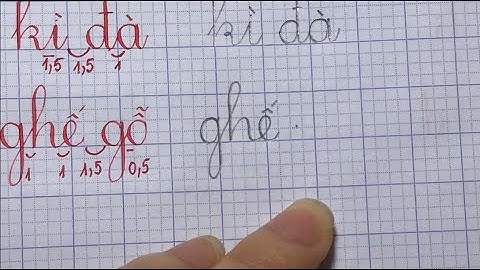 kì đà kì đà
1,5 1,5 1
ghế gỗ ghế
1 1 1,5 0,5